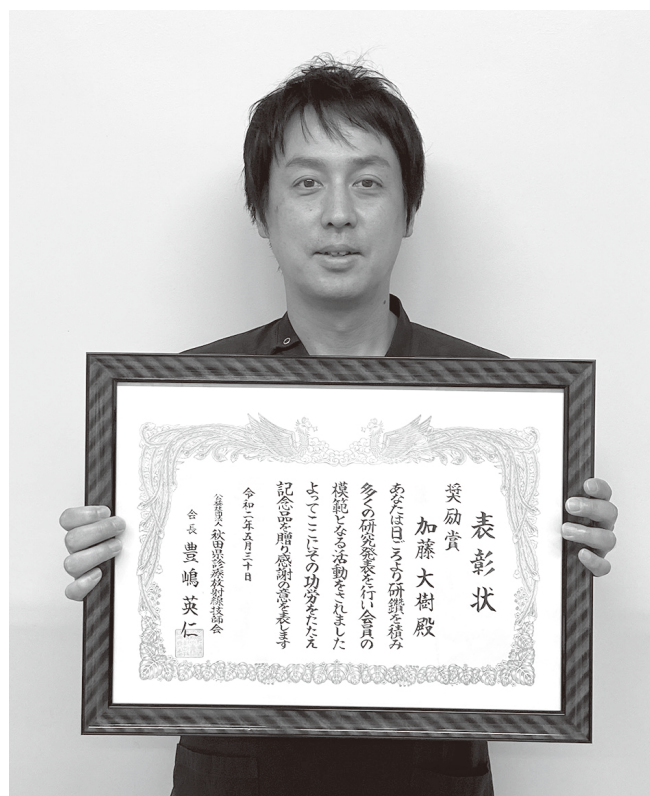 表彰状
奨励賞
加藤大樹殿
あなたは日ごろより研鑽を積み
多くの研究発表を行い会員の
模範となる活動をされました
よってここにその功労をたたえ
記念品を贈り感謝の意を表します
令和二年五月三十日
公益社団法人 秋田県診療放射線技師会
会長 豊嶋英仁